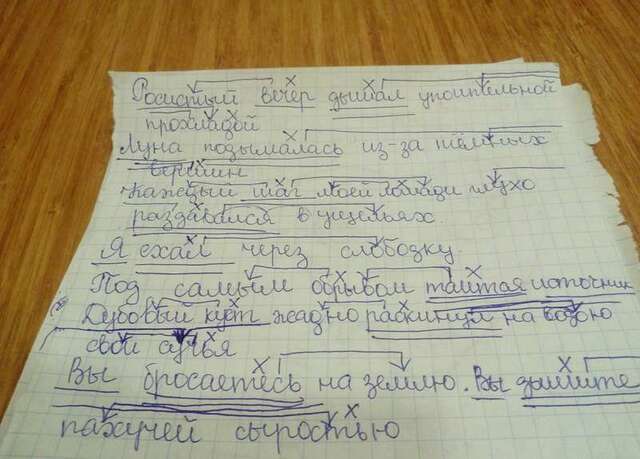 Росистый вечер дышал упоительной
прохладой
Луна подымалась из-за тёмных
вершин
Каждый шаг моей лошади глухо
раздавался в ущельях.
Я ехал через слободку.
Под самым обрывом таится источник
Дубовый куст жадно раскинул на водою
свои сучья
Вы бросаетесь на землю. Вы дышите
пахучей сыростью